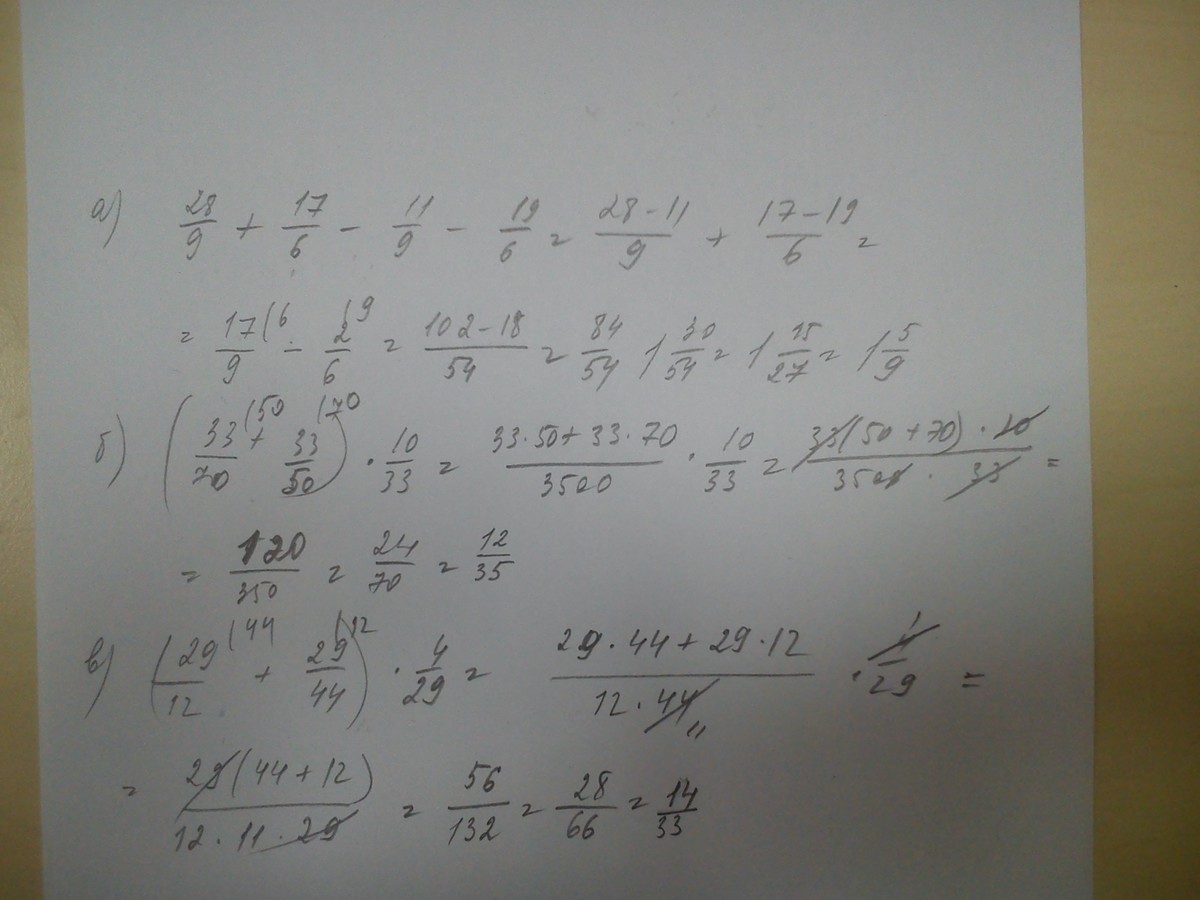 а) 28/9 + 17/6 - 11/9 - 19/6 = (28-11)/9 + (17-19)/6 =
= 17(6/9 - 2(9/6 = (102-18)/54 = 84/54 1 30/54 = 1 15/27 = 1 5/9
б) (33(50/70 + 33(70/50) · 10/33 = (33·50+33·70)/3500 · 10/33 = (33(50+70)·10)/(3500·33) =
= 120/350 = 24/70 = 12/35
в) (29(44/12 + 29(12/44) · 4/29 = (29·44+29·12)/(12·44) 11 · 4/29 1 =
= (29(44+12))/(12·11·29) = 56/132 = 28/66 = 14/33